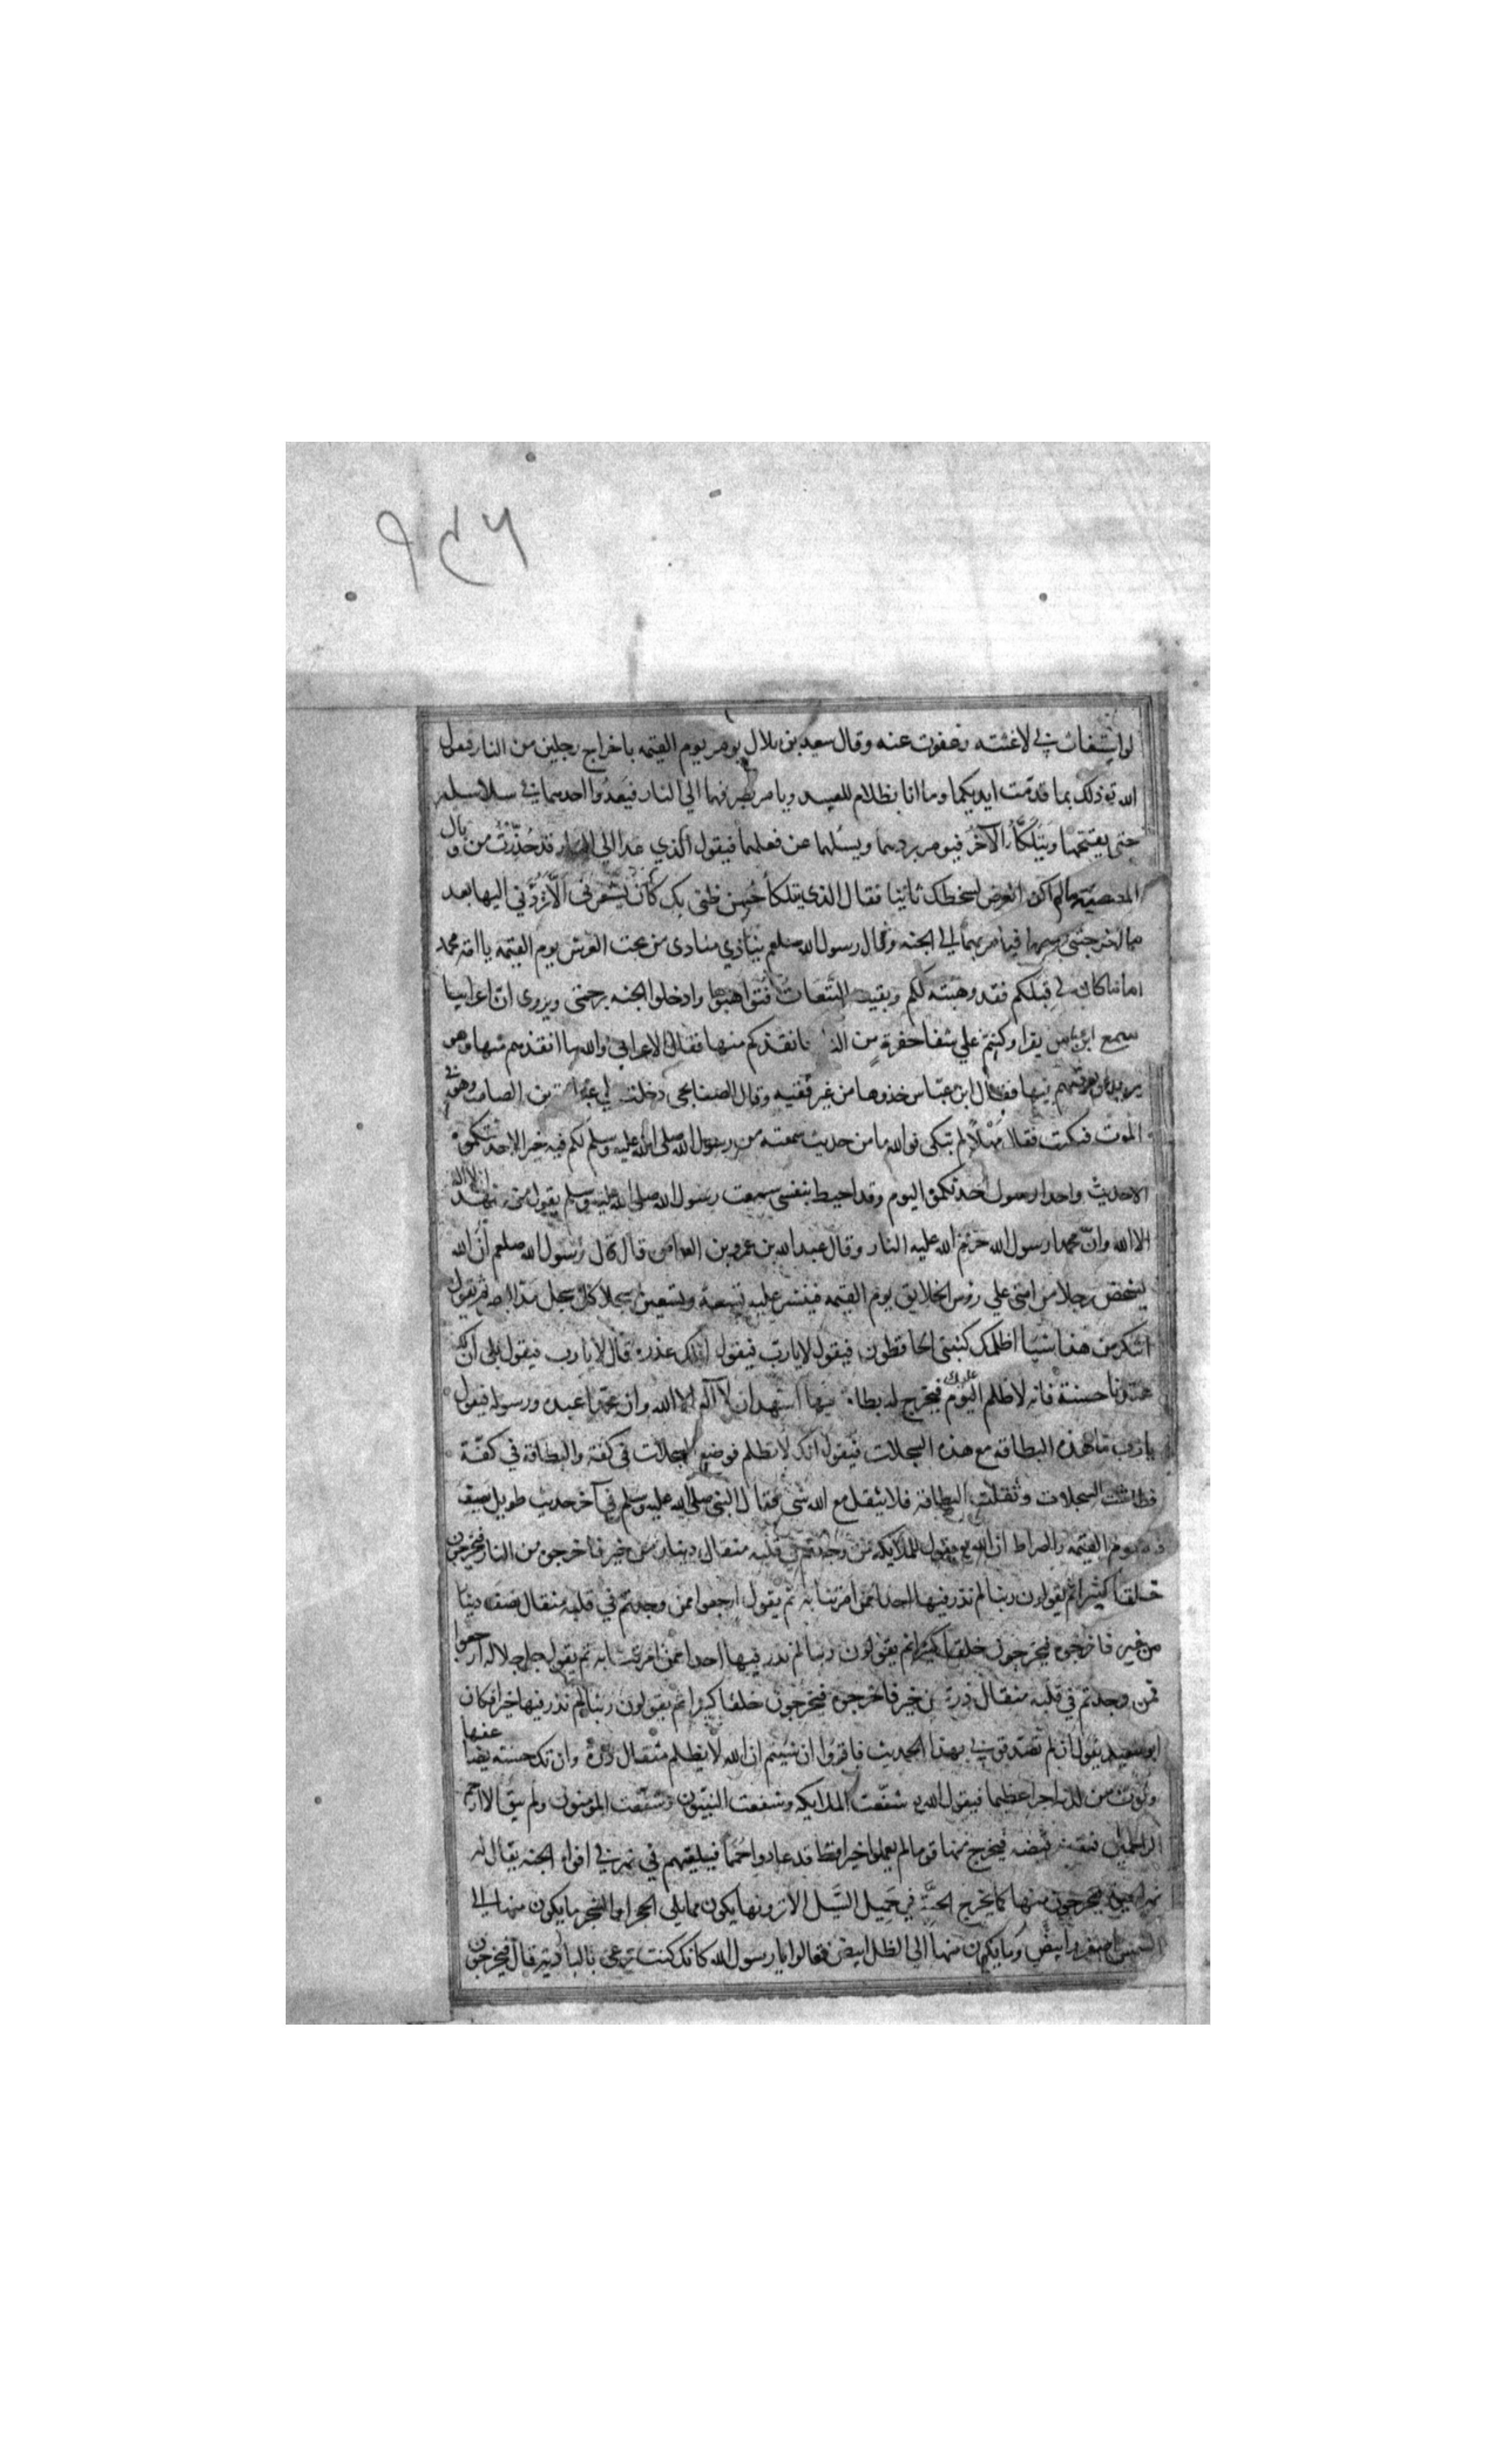 ۹۴۶
لو استغاث بي لاغثته وعفوت عنه وقال سعيد بن بلال يومر يوم القيمه باخراج رجلين من النار فيقول
الله تع ذلك بما قدمت ايديكما وما انا بظلام للعبيد ويامر بصرفهما الي النار فيعدوا احدهما في سلاسله
حتي يقتحمها ويتلكّأ الآخر فيومر بردهما ويسئلهما عن فعلهما فيقول الذي عدا الي النار قد حُذّرتُ من وبال
المعصية مالم اكن اتعرض لسخطك ثانيا فقال الذي يتلكأ حُسن ظني بك كان يشعرني الّا تردّني اليها بعد
ما اخرجتني منها فيامر بهما الي الجنه وقال رسول الله صلعم ينادي منادى من تحت العرش يوم القيمه يا امة محمد
اما ما كان لي قِبَلكم فقد وهبته لكم وبقيت التَّبِعاتُ فتواهبوها وادخلوا الجنه برحمتي ويروى انّ اعرابيا
سمع ابن عباس يقرا وكنتم علي شفا حفرة من النار فانقذكم منها فقال الاعرابي والله ما انقذهم منها وهو
يريد ان يوقعهم فيها فقال ابن عبّاس خذوها من غير فقيه وقال الصنابحي دخلت علي عبادة بن الصامت وهو في
الموت فبكيت فقال مَهْلاً لم تبكي فوالله ما من حديث سمعته من رسول الله صلى الله عليه وسلم لكم فيه خير الا حدثتكموه
الا حديث واحدا وسوف احدثكموه اليوم وقد احيط بنفسي سمعت رسول الله صلى الله عليه وسلم يقول من شهد ان لا اله
الا الله وانّ محمدا رسول الله حرّم الله عليه النار وقال عبد الله بن عمرو بن العاص قال قال رسول الله صلعم انّ الله
يستخلص رجلا من امتي علي رؤس الخلايق يوم القيمه فينشر عليه تسعة وتسعين سجلا كل سجل مدّ البصر ثم يقول
اتنكر من هذا شيئا اظلمك كتبتي الحافظون فيقول لا يا ربّ فيقول افلك عذر قال لا يا رب فيقول بلى ان لك
عندنا حسنة فانه لا ظلم عليك اليوم فيخرج له بطاقة فيها اشهد ان لا اله الا الله وان محمدا عبده ورسوله فيقول
يا رب ما هذه البطاقه مع هذه السجلات فيقول انك لا تظلم فوضع السجلات في كفّة والبطاقة في كفّة
فطاشت السجلات وثقلت البطاقه فلا يثقل مع الله شي وقال النبي صلى الله عليه وسلم في آخر حديث طويل يصف
فيه يوم القيمه والصراط ان الله تع يقول للملايكه من وجدتم في قلبه مثقال دينار من خير فاخرجوه من النار فيخرجون
خلقا كثيرا ثم يقولون ربنا لم نذر فيها احدا ممن امرتنا به ثم يقول ارجعوا فمن وجدتم في قلبه مثقال نصف دينار
من خير فاخرجوه فيخرجون خلقا كثيرا ثم يقولون ربنا لم نذر فيها احدا ممن امرتنا به ثم يقول جل جلاله ارجعوا
فمن وجدتم في قلبه مثقال ذرة من خير فاخرجوه فيخرجون خلقا كثيرا ثم يقولون ربنا لم نذر فيها خيرا فكان
ابو سعيد يقول ان لم تصدقوني بهذا الحديث فاقرؤا ان شيتم ان الله لا يظلم مثقال ذرة وان تك حسنه يضاعفها
ويوت من لدنه اجرا عظيما فيقول الله تع شفّعت الملايكه وشفعت النبيّون وشفّعت المؤمنون ولم يبق الا ارحم
الراحمين فيقبض قبضه فيخرج منها قوما لم يعملوا خيرا قط قد عادوا حُمَما فيلقيهم في نهر في افواه الجنه يقال له
نهر الحيوة فيخرجون منها كما يخرج الحبّة في حَميل السّيل الا ترونها يكون مما يلي الحجر او الشجر ما يكون منها الي
الشمس اصفر وابيض وما يكون منها الي الظل ابيض فقالوا يا رسول الله كانك كنت ترعى بالبادية قال فيخرجون